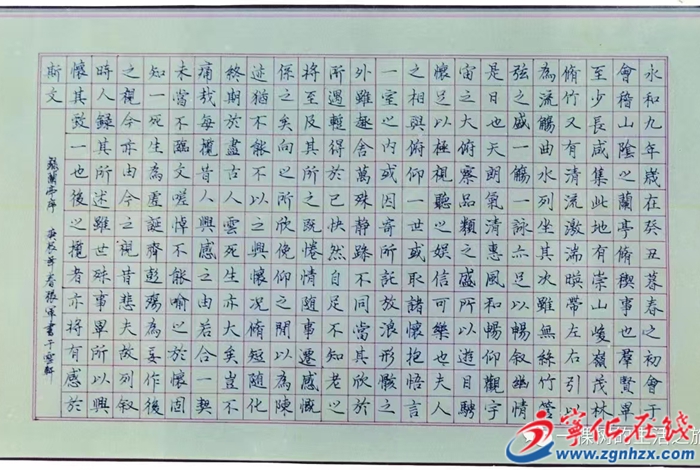 永和九年歲在癸丑暮春之初會于
會稽山陰之蘭亭脩稧事也羣賢畢
至少長咸集此地有崇山峻嶺茂林
脩竹又有清流激湍暎帶左右引以
為流觴曲水列坐其次雖無絲竹管
弦之盛一觴一詠亦足以暢叙幽情
是日也天朗氣清惠風和暢仰觀宇
宙之大俯察品類之盛所以遊目騁
懷足以極視聽之娛信可樂也夫人
之相與俯仰一世或取諸懷抱悟言
一室之內或因寄所託放浪形骸之
外雖趣舍萬殊静躁不同當其欣於
所遇暫得於己快然自足不知老之
將至及其所之既惓情隨事遷感慨
係之矣向之所欣俛仰之間以為陳
迹猶不能不以之興懷況脩短隨化
終期於盡古人雲死生亦大矣豈不
痛哉每攬昔人興感之由若合一契
未嘗不臨文嗟悼不能喻之於懷固
知一死生為虛誕齊彭殤為妄作後
之視今亦由今之視昔悲夫故列叙
時人録其所述雖世殊事異所以興
懷其致一也後之攬者亦將有感於
斯文
蘭亭序 春張軍書于雲軒
宁化在线
www.zgnhzx.com